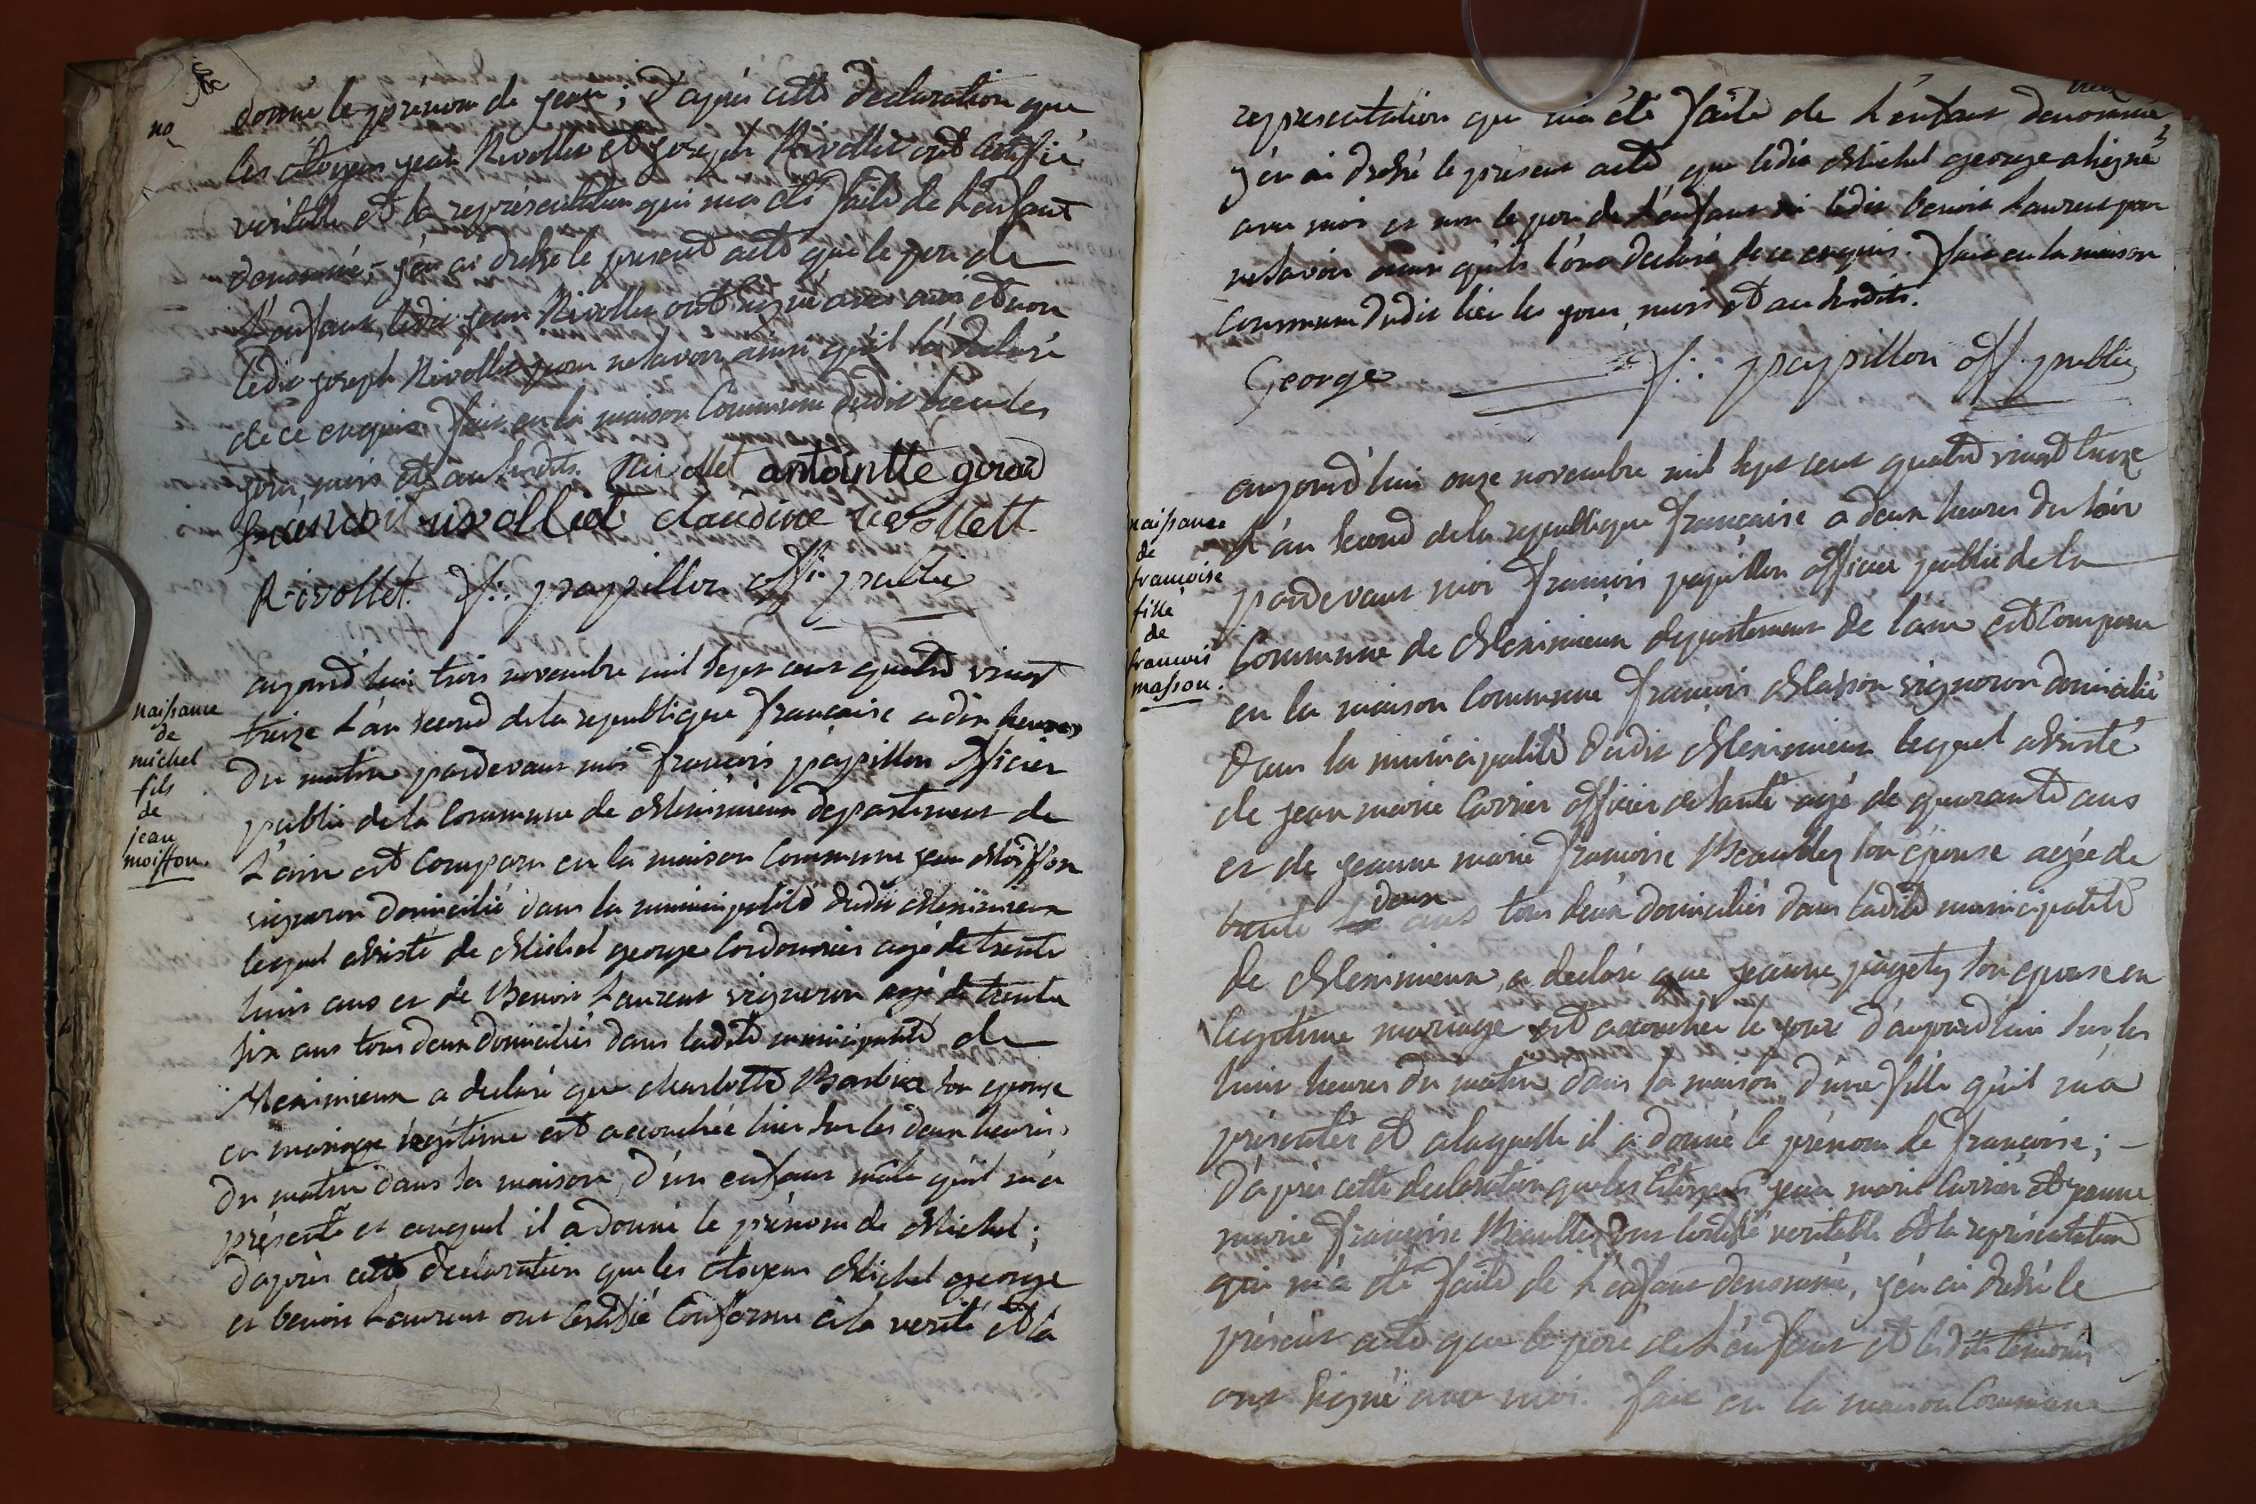 donné le prénom de jean; d'après cette declaration que
les citoyens jean Rivollet et joseph Rivollet ont certifié
veritable et la représentation qui m'a été faite de L'enfant
denommé, j'en ai dressé le present acte que le pere de
L'enfant, ledit jean Rivollet ont signé avec moi et non
ledit joseph Rivollet pour ne savoir ainsi qu'il l'a declaré
de ce enquis. fait en la maison Commune dudit lieu les
jour, mois et an susdits. Rivollet antointte girard
francois rivolliet claudine rivollett
Rivollet. f: papillon offi. public
naissance
de
michel
fils
de
jean
moiffon.
aujourd'hui trois novembre mil sept cent quatre vingt
treize L'an second de la republique francaise a dix heures
du matin pardevant moi françois papillon officier
public de la Commune de Meximieux departement de
L'ain est comparu en la maison Commune jean Moiffon
vigneron domicilié dans la municipalité dudit Meximieux
lequel assisté de Michel george Cordonnier agé de trente
huit ans et de Benoit Laurent vigneron agé de trente
six ans tous deux domiciliés dans ladite municipalité de
Meximieux a declaré que charlotte Barbier son epouse
en mariage legitime est accouchée hier sur les deux heures
du matin dans sa maison, d'un enfant mâle qu'il m'a
présenté et auquel il a donné le prénom de Michel;
d'après cette declaration que les citoyens Michel george
et benoit Laurent ont certifié conforme à la verité et la
representation qui m'a été faite de L'enfant denommé
j'en ai dressé le présent acte que ledit Michel george a signé
avec moi et non le pere de L'enfant ni ledit benoit Laurent pour
ne savoir ainsi qu'ils l'ont declaré de ce enquis. fait en la maison
commune dudit lieu les jour, mois et an susdits.
George f: papillon off. public
naissance
de
francoise
fille
de
francois
masson.
aujourd'hui onze novembre mil sept cent quatre vingt treize
L'an second de la republique francaise a deux heures du soir
pardevant moi francois papillon officier public de la
Commune de Meximieux departement de l'ain est comparu
en la maison commune françois Masson vigneron domicilié
dans la municipalité dudit Meximieux lequel assisté
de jean marie Carrier officier de santé agé de quarante ans
et de jeanne marie francoise Beaublez son épouse agée de
trente deux ans tous deux domiciliés dans ladite municipalité
de Meximieux, a declaré que jeanne pagety son epouse en
legitime mariage est accouchée le jour d'aujourd'hui sur les
huit heures du matin dans sa maison d'une fille qu'il m'a
présentée et a laquelle il a donné le prénom de francoise;
d'après cette declaration que les citoyens jean marie Carrier et jeanne
marie françoise Beaublez ont certifié veritable et la représentation
qui m'a été faite de L'enfant denommé, j'en ai dressé le
présent acte que le pere de L'enfant et lesdits temoins
ont signé avec moi. fait en la maison Commune